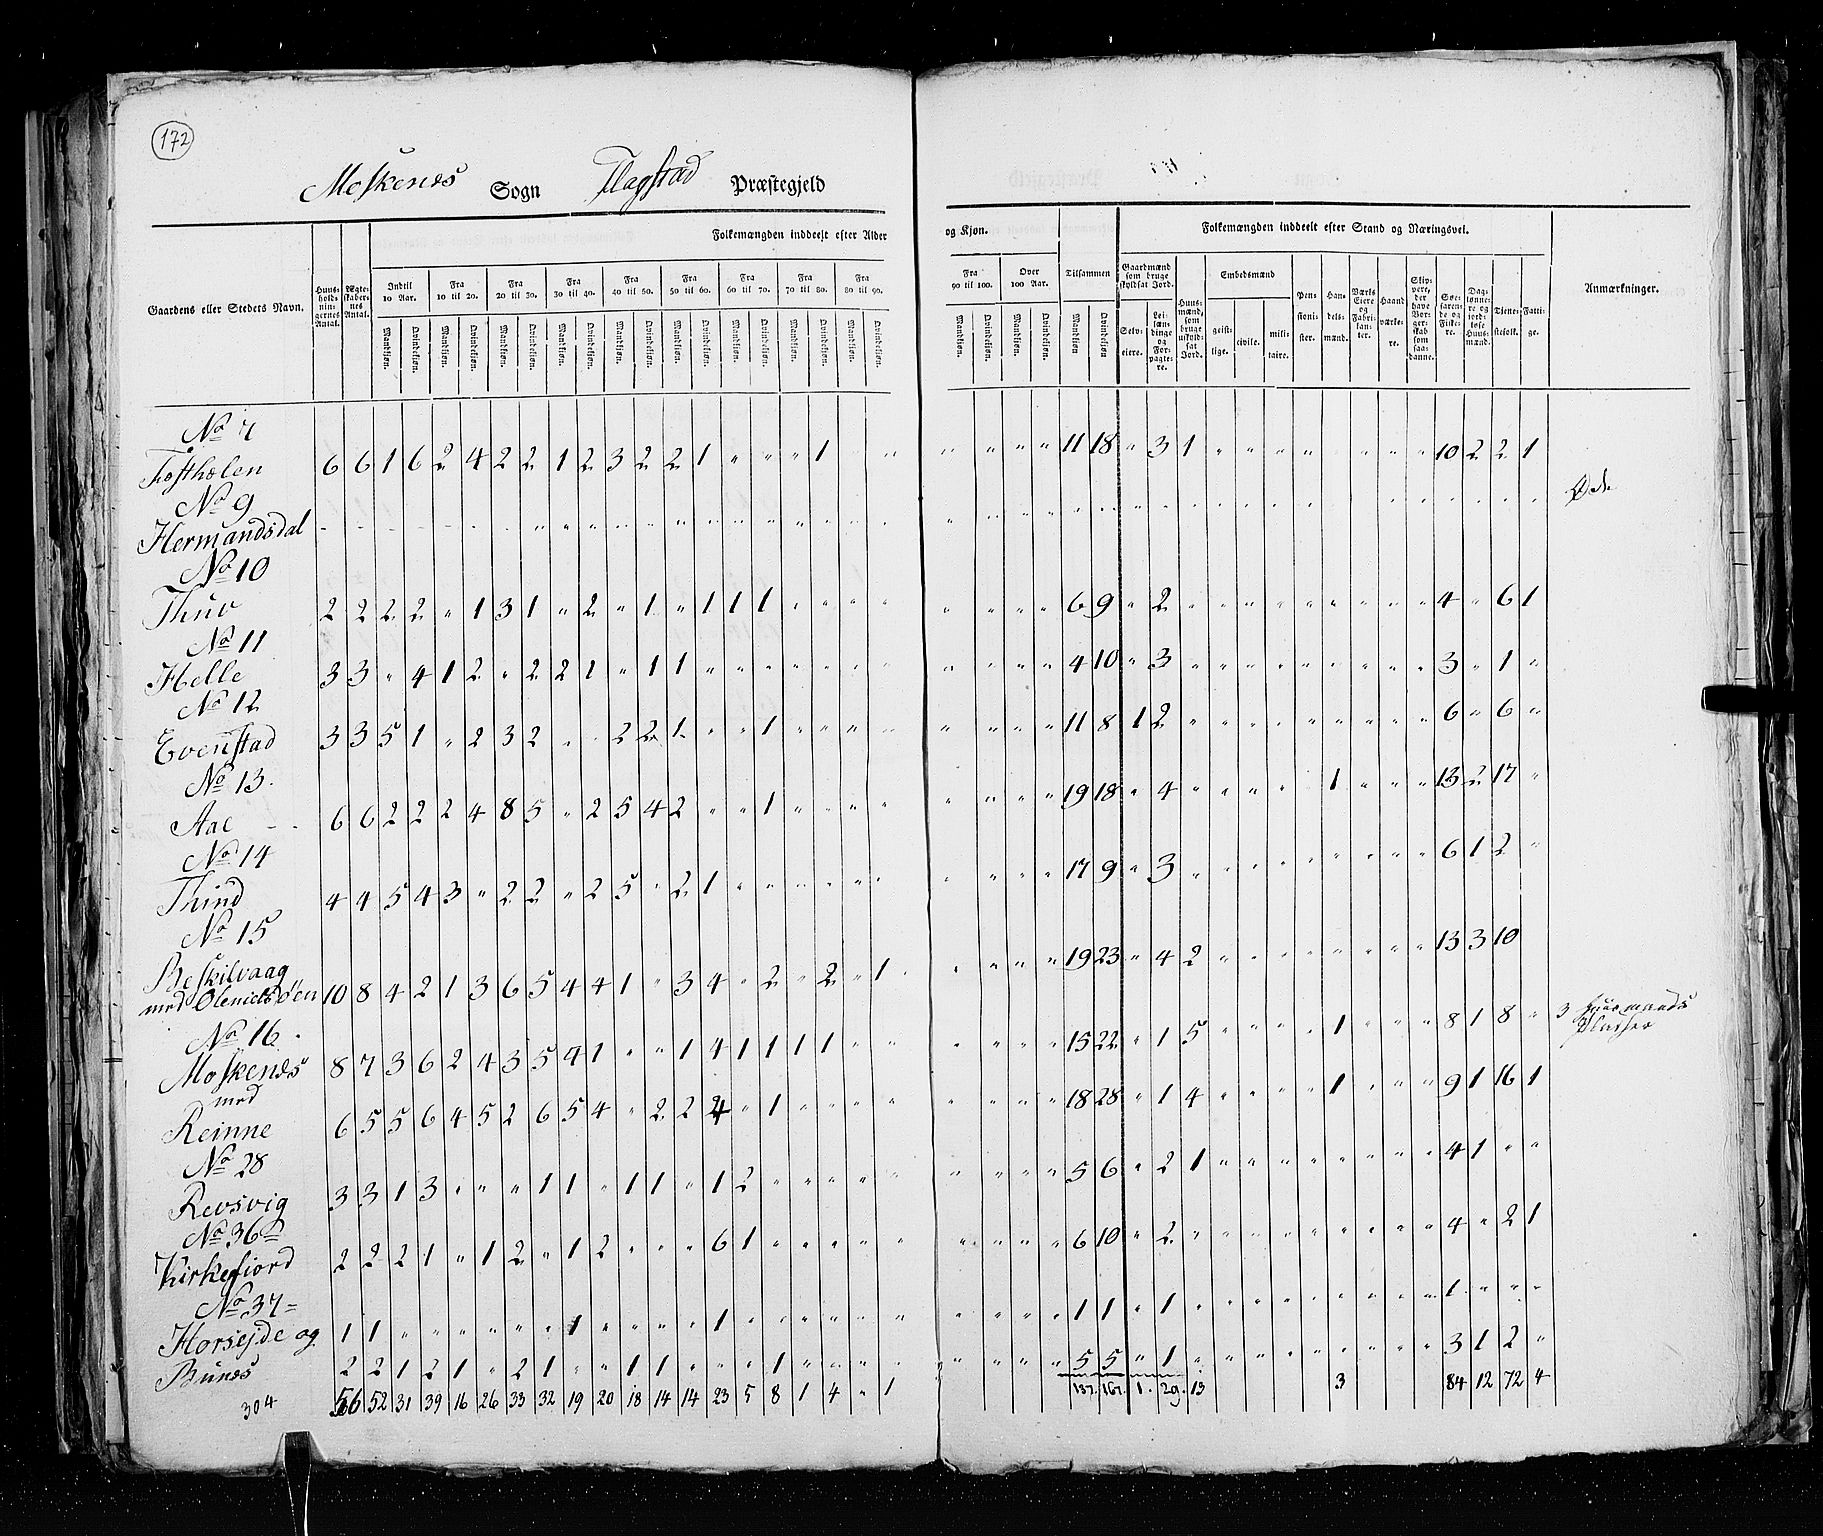 172
Moskenes Sogn Flagstad Præstegjeld
Gaardens eller Steders Navn.
Huusholdningernes Antal.
Ægteskabernes Antal.
Folkemængden inddeelt efter Alder og Kjøn.
Indtil 10 Aar. Fra 10 til 20. Fra 20 til 30. Fra 30 til 40. Fra 40 til 50. Fra 50 til 60. Fra 60 til 70. Fra 70 til 80. Fra 80 til 90. Fra 90 til 100. Over 100 Aar. Tilsammen
Mandkjøn. Qvindekjøn.
Folkemængden inddeelt efter Stand og Næringsvei.
Gaardmænd som bruge skyldsat Jord. Selveiere. Leilændinge og Forpagtere.
Huusmænd, som bruge uskyldsat Jord.
Embedsmænd geistlige. civile. militaire.
Pensionister. Handelsmænd. Værks Eiere og Fabrikanter. Haandværkere.
Søefarende og Fiskere. Tjenestefolk. Fattige.
Anmærkninger.
No 7
Toftholen 6 6 1 6 2 4 2 2 1 2 3 2 2 1 " " " 1 " " " " " " 11 18 " 3 1 " " " " " " " " 10 2 2 1
No 9
Hermandsdal
No 10
Thuv 2 2 2 2 " 1 3 1 " 2 " 1 " 1 1 1 " " " " " " " " 6 9 " 2 " " " " " " " " " 4 " 6 1
No 11
Helle 3 3 " 4 1 2 " 2 2 1 " 1 1 " " " " " " " " " " " 4 10 " 3 " " " " " " " " " 3 " 1 "
No 12
Evenstad 3 3 5 1 " 2 3 2 " " 2 2 1 " " 1 " " " " " " " " 11 8 1 2 " " " " " " " " " 6 " 6 "
No 13.
Aae 6 6 2 2 2 4 8 5 " 2 5 4 2 " " 1 " " " " " " " " 19 18 " 4 " " " " " 1 " " " 13 2 17 "
No 14
Thind 4 4 5 4 3 " 2 2 " 2 5 " 2 1 " " " " " " " " " " 17 9 " 3 " " " " " " " " " 6 1 2 "
No 15
Beskilvaag
med Olenielsøen 10 8 4 2 1 3 6 5 4 4 1 " 3 4 " 2 " 2 " 1 " " " " 19 23 " 4 2 " " " " " " " " 13 3 10
No 16.
Moskenes 8 7 3 6 2 4 3 5 4 1 " " 1 4 1 1 1 1 " " " " " " 15 22 " 1 5 " " " " 1 " " " 8 1 8 " 3 Huusmands
Pladser
med
Reinne 6 5 5 6 4 5 2 6 5 4 " 2 2 4 " 1 " " " " " " " " 18 28 " 1 4 " " " " 1 " " " 9 1 16 1
No 28
Revsvig 3 3 1 3 " " " 1 1 " 1 1 " 1 2 " " " " " " " " " 5 6 " 2 1 " " " " " " " " 4 1 " "
No 36
Kirkefiord 2 2 2 1 " 1 2 " 1 2 " " " 6 1 " " " " " " " " " 6 10 " 2 " " " " " " " " " 4 " 2 1
No 37
Horsejde og 1 1 " " " " " " 1 " " " " 1 " " " " " " " " " " 1 1 " 1 " " " " " " " " " 1 " " "
Bunes 2 2 1 2 1 " 2 1 " " 1 1 " " " 1 " " " " " " " " 5 5 " 1 " " " " " " " " " 3 1 2 "
304 56 52 31 39 16 26 33 32 19 20 18 14 14 23 5 8 1 4 " 1 137. 167. 1. 29. 13 3 84 12 72 4